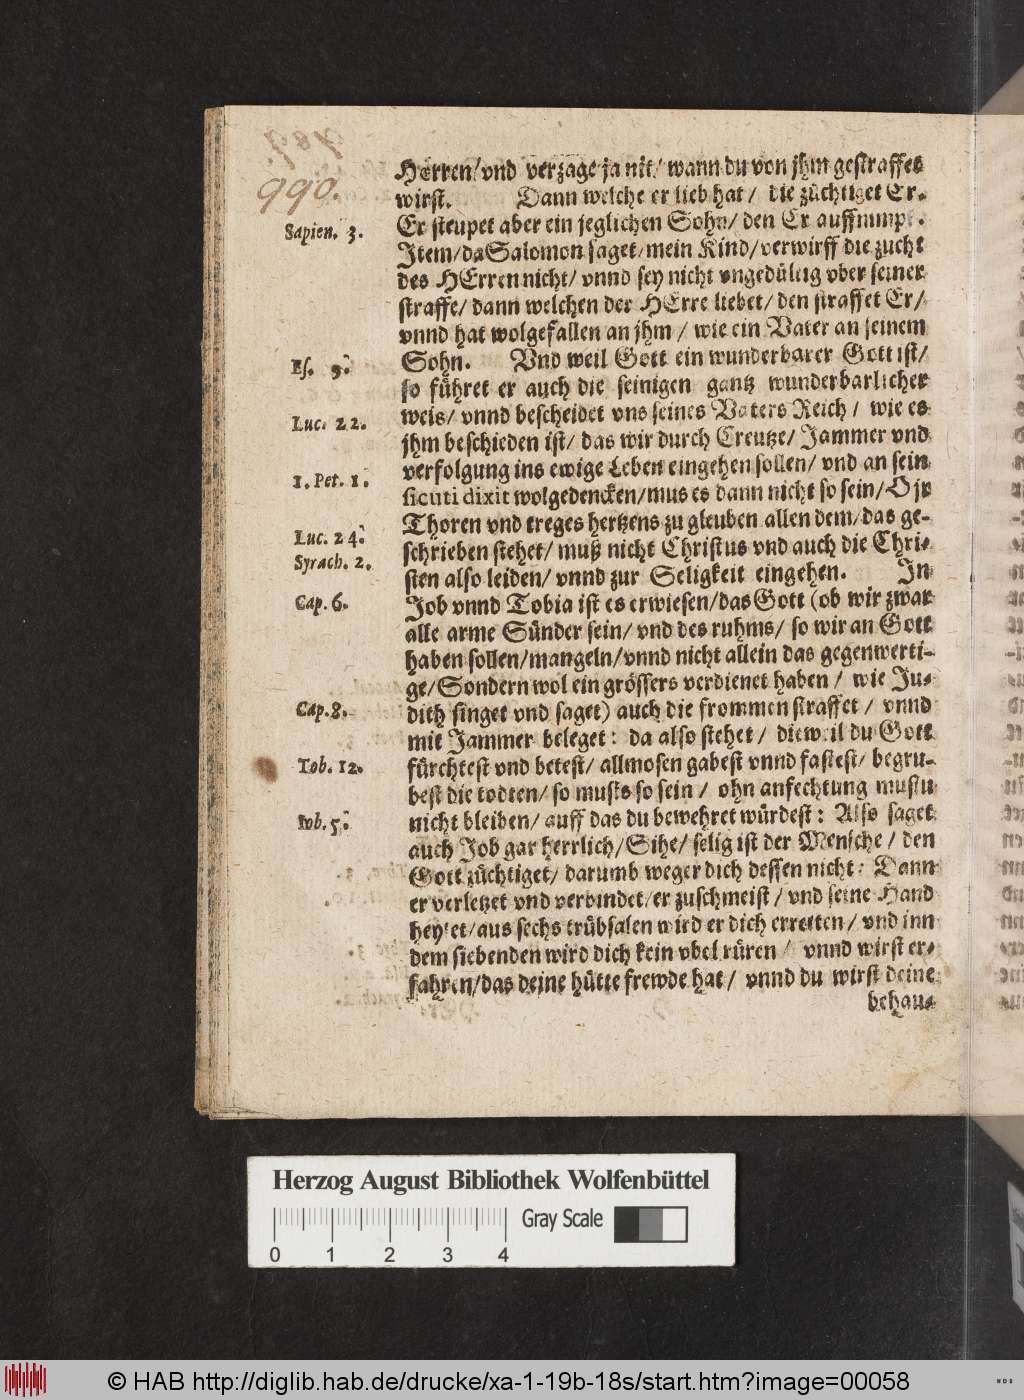 990.
Herren/vnd verzage ja nit/ wann du von jhm gestraffet
wirst. Dann welche er lieb hat/ die züchtiget Er.
Sapien. 3.
Er steupet aber ein jeglichen Sohn/ den Er auffnimpt.
Item/ da Salomon saget/ mein Kind/ verwirff die zucht
des HErren nicht/ vnnd sey nicht vngedültig vber seiner
straffe/ dann welchen der HErre liebet/ den straffet Er/
vnnd hat wolgefallen an jhm/ wie ein Vater an seinem
Es. 9.
Sohn. Vnd weil Gott ein wunderbarer Gott ist/
so führet er auch die seinigen gantz wunderbarlicher
Luc. 22.
weis/ vnnd bescheidet vns seines Vaters Reich/ wie es
jhm beschieden ist/ das wir durch Creutze/ Jammer vnd
1. Pet. 1.
verfolgung ins ewige Leben eingehen sollen/ vnd an sein
sicuti dixit wolgedencken/mus es dann nicht so sein/ O jr
Luc. 24.
Thoren vnd treges hertzens zu gleuben allen dem/ das ge-
schrieben stehet/ muß nicht Christus vnd auch die Chri-
Syrach. 2.
sten also leiden/ vnnd zur Seligkeit eingehen. In
Cap. 6.
Job vnnd Tobia ist es erwiesen/das Gott (ob wir zwar
alle arme Sünder sein/ vnd des ruhms/ so wir an Gott
haben sollen/mangeln/vnnd nicht allein das gegenwerti-
ge/Sondern wol ein grössers verdienet haben/ wie Ju-
Cap. 8.
dith singet vnd saget) auch die frommen straffet/ vnnd
mit Jammer beleget: da also stehet/ dieweil du Gott
Tob. 12.
fürchtest vnd betest/ allmosen gabest vnnd fastest/ begru-
best die todten/ so musts so sein/ ohn anfechtung mustu
Iob. 5.
nicht bleiben/ auff das du bewehret würdest: Also saget
auch Job gar herrlich/Sihe/ selig ist der Mensche/ den
Gott züchtiget/ darumb weger dich dessen nicht: Dann
er verletzet vnd verbindet/er zuschmeist/ vnd seine Hand
heylet/aus sechs trübsalen wird er dich erretten/ vnd inn
dem siebenden wird dich kein vbel rüren/ vnnd wirst er-
fahren/das deine hütte frewde hat/ vnnd du wirst deine
behau-
Herzog August Bibliothek Wolfenbüttel
Gray Scale
0 1 2 3 4
© HAB http://diglib.hab.de/drucke/xa-1-19b-18s/start.htm?image=00058